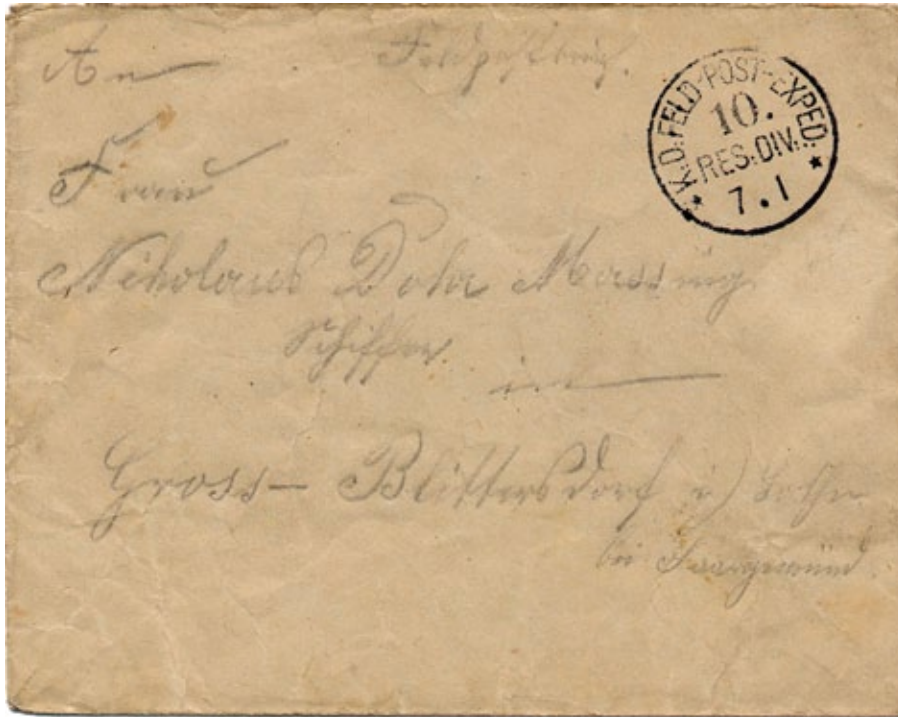 An Feldpostbrief.
K.D. FELD-POST-EXPED.
10.
RES. DIV.
7. 1
Frau
Nikolaus Dohr Massing
Schiffer
in
Gross-Blittersdorf i) Lothr
bei Saargemünd.